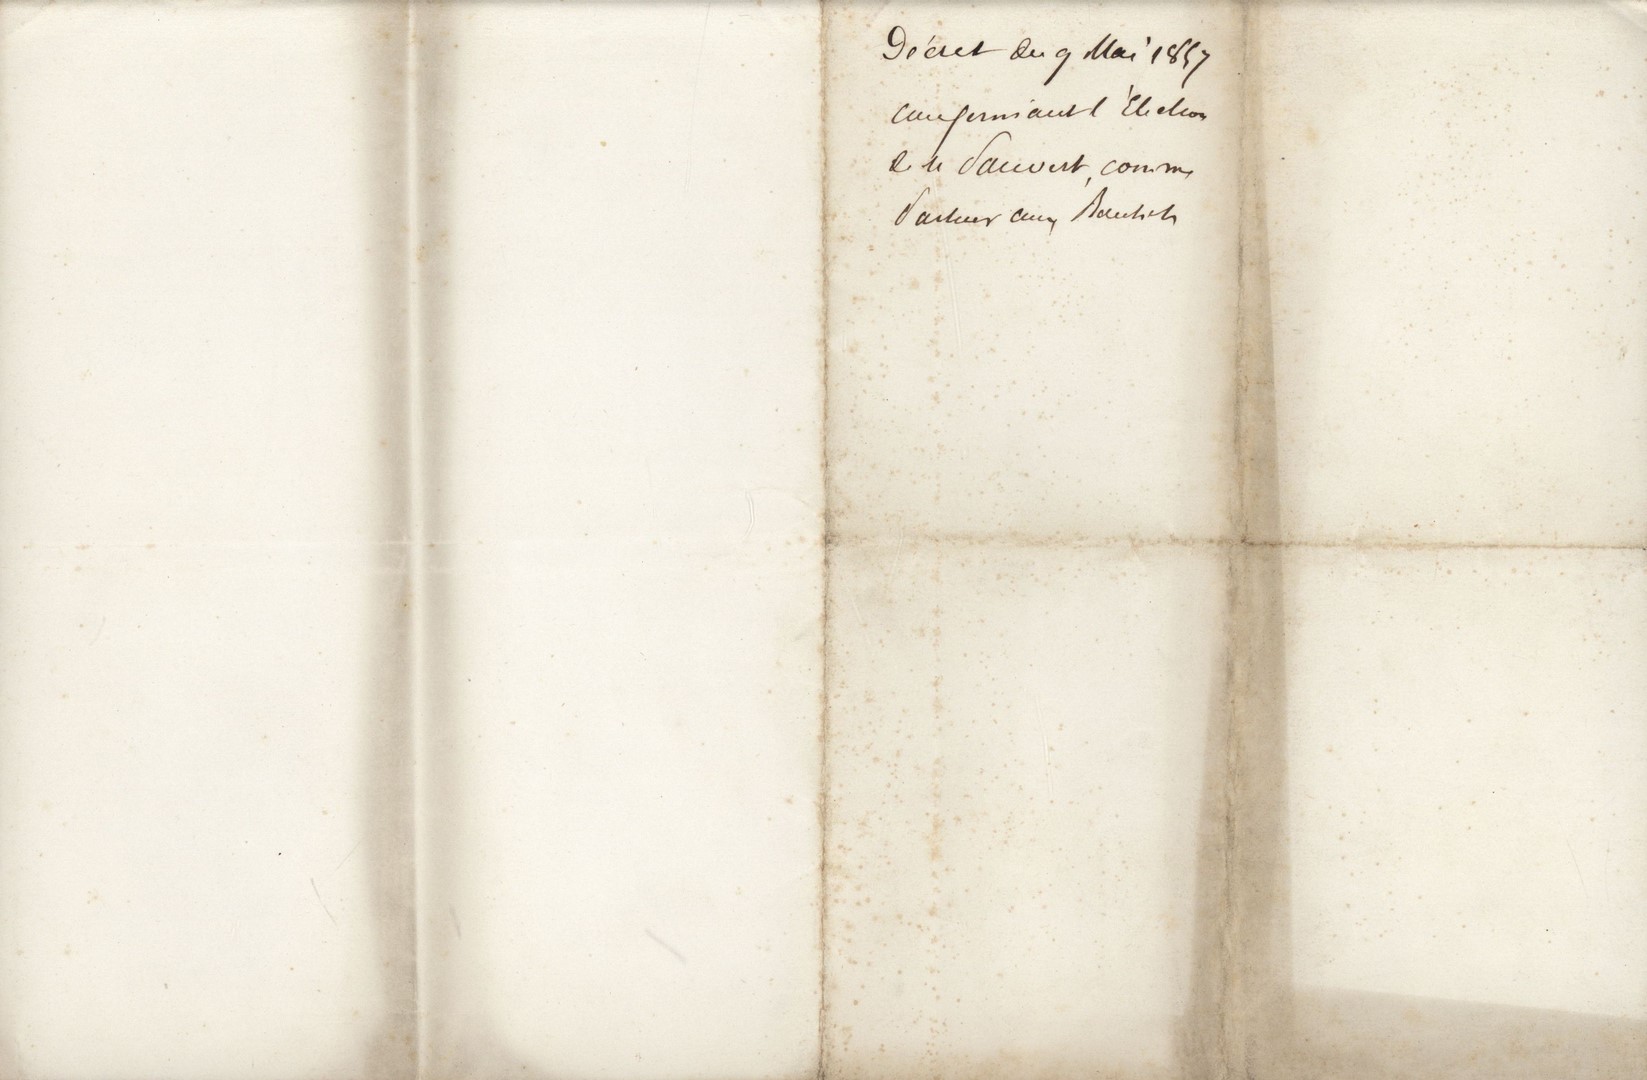 Décret du 9 Mai 1857
confirmant l'Election
de M Vauvert, comme
Pasteur aux